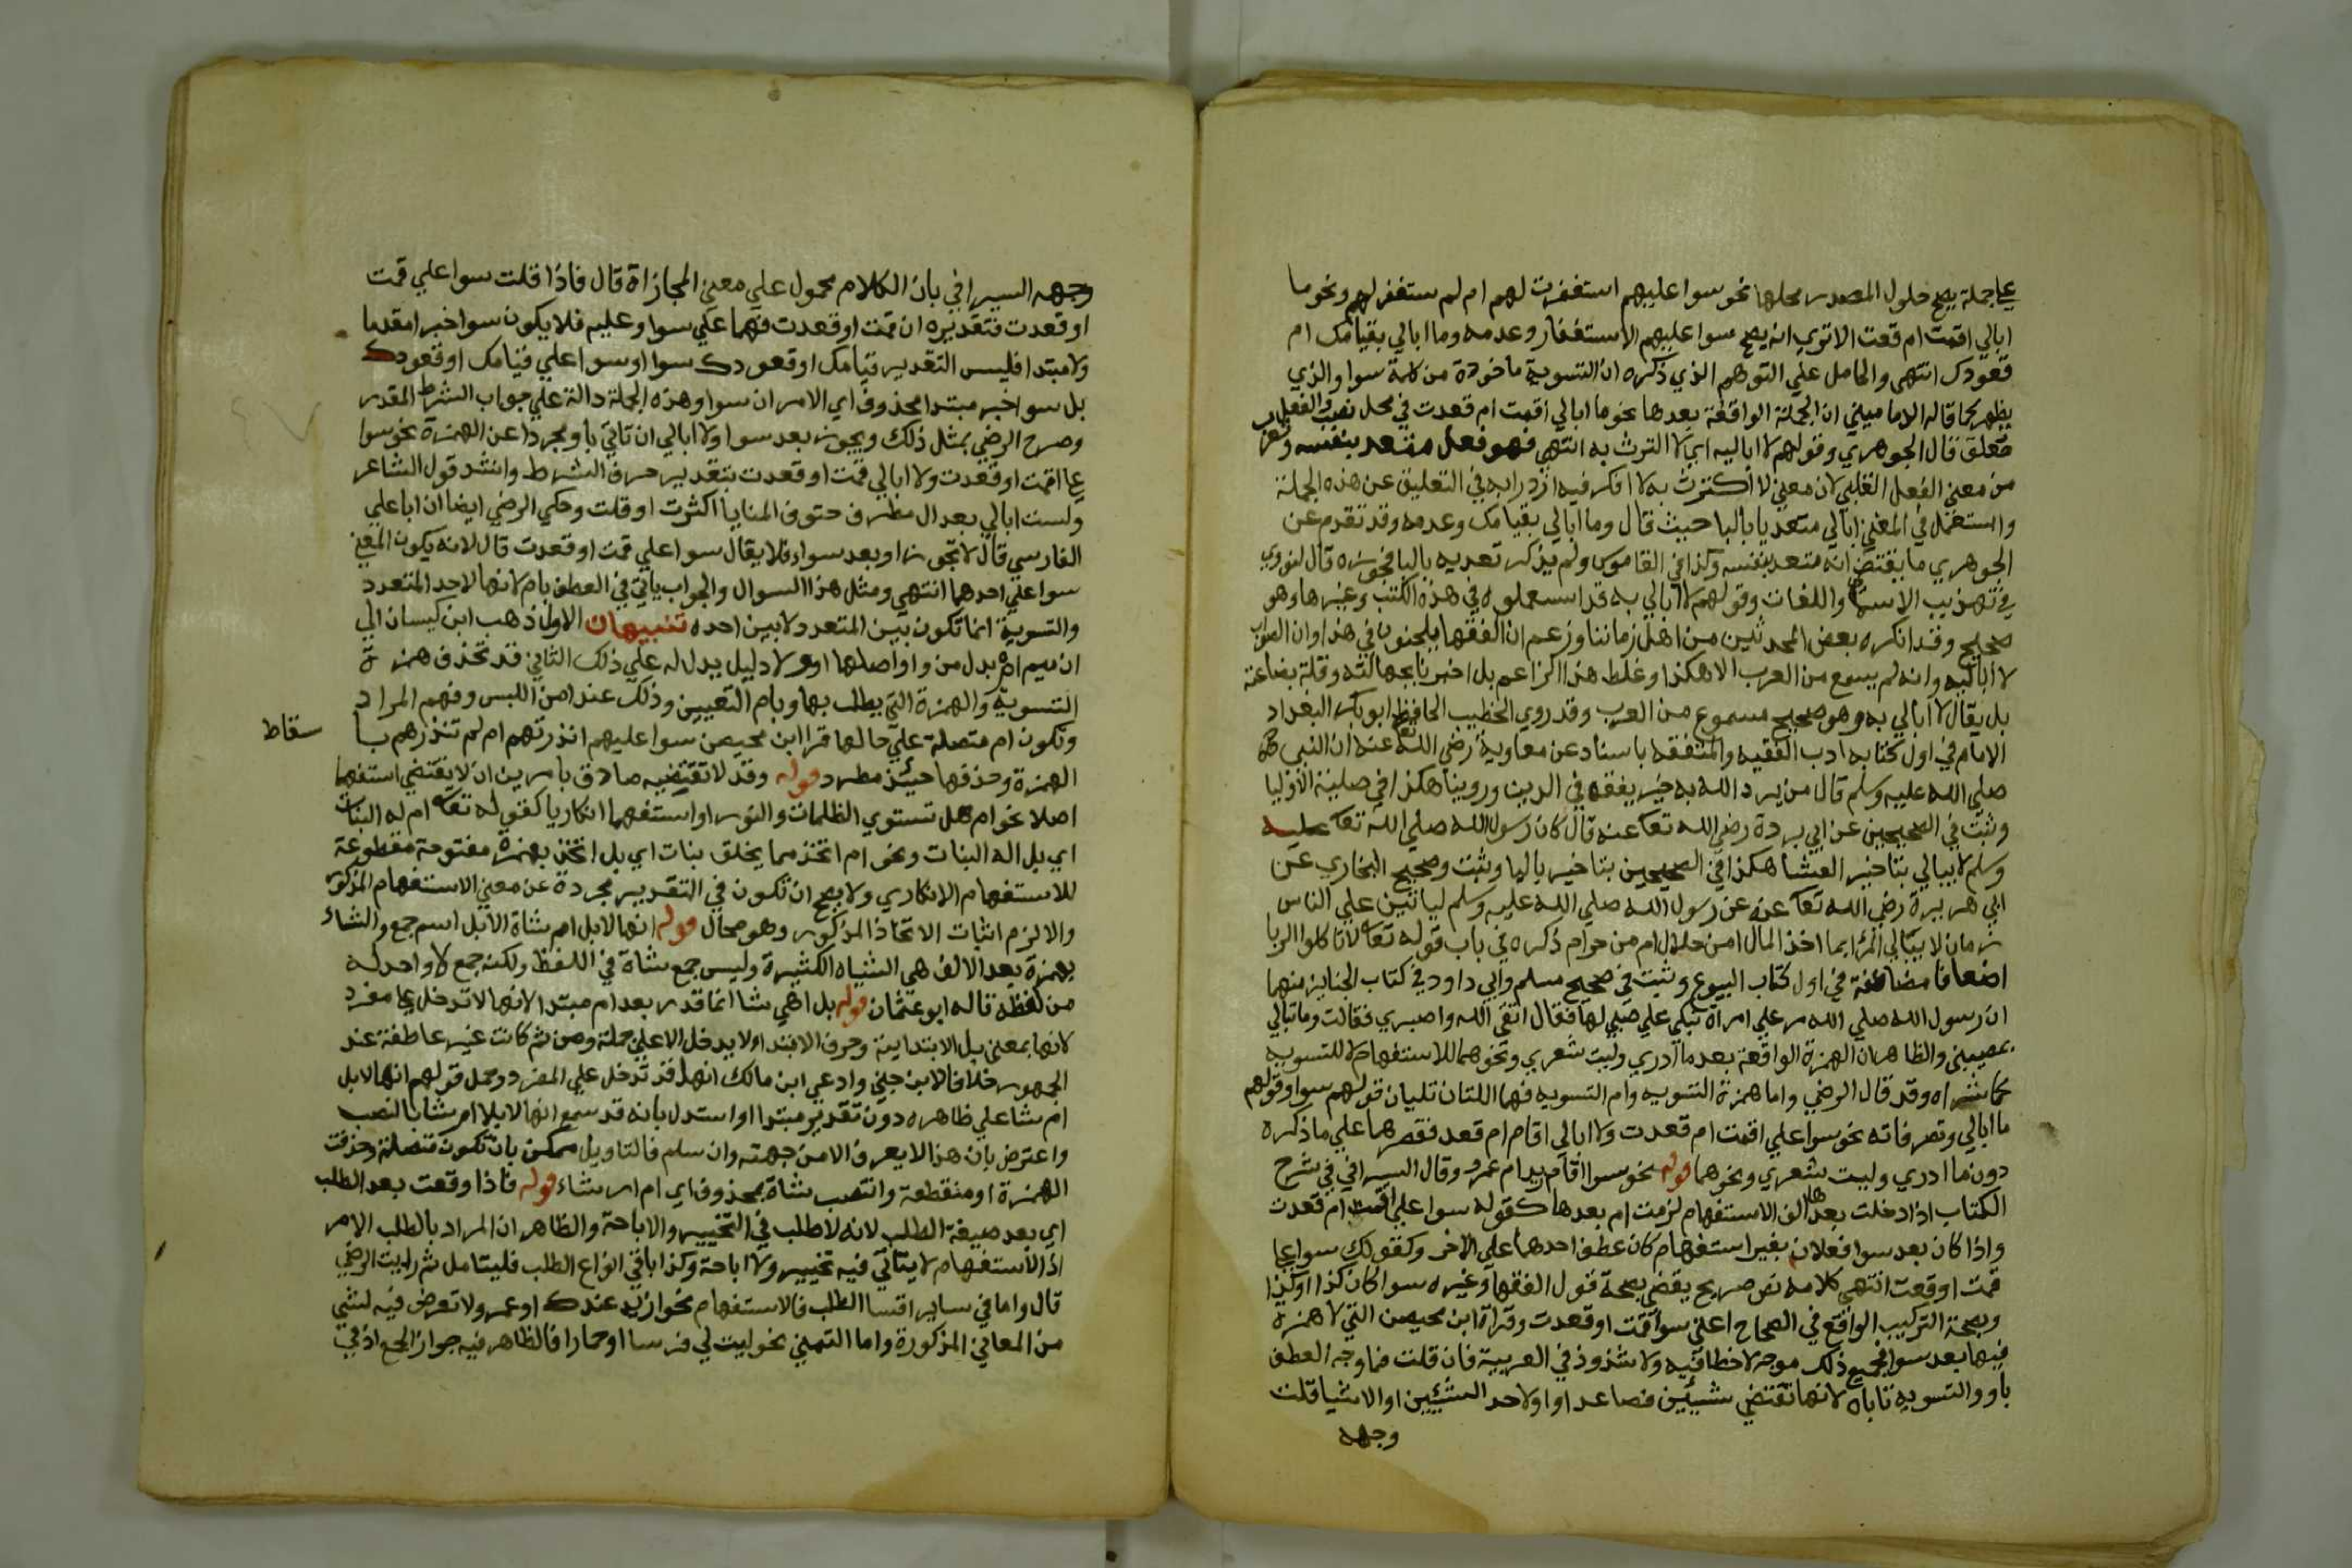 علي جملة يصح حلول المصدر محلها نحو سوا عليهم استغفرت لهم ام لم ستغفر لهم ونحو ما
ابالي اقمت ام قعت الا تري انه يصح سوا عليهم الاستغفار وعدمه وما ابالي بقيامك ام
قعودك انتهي والحامل علي التوهم الذي ذكره ان التسوية ماخوذة من كلمة سوا والذي
يظهر كما قاله الاماميني ان الجملة الواقعة بعدها نحو ما ابالي اقمت ام قعدت في محل نصب والفعل
معلق قال الجوهري وقولهم لا اباليه اي لا اكترث به انتهي فهو فعل متعد بنفسه
من معني الفعل القلبي لان معني لا اكترث به لا افكر فيه ازدرا به في التعليق عن هذه الجملة
واستعمل في المغني ابالي متعديا بالبا حيث قال وما ابالي بقيامك وعدمه وقد تقدم عن
الجوهري ما يقتضي انه متعد بنفسه وكذا في القاموس ولم يذكر تعديه بالبا قال النووي
في تهذيب الاسما واللغات وقولهم لا ابالي به قد استعملوه في هذه الكتب وغيرها وهو
صحيح وقد انكره بعض المحدثين من اهل زماننا وزعم ان الفقها يلحنون في هذا وان الصواب
لا اباليه وانه لم يسمع من العرب الا هكذا وغلط هذا الزاعم بل اخبرنا بجهالته وقلة بضاعته
بل يقال لا ابالي به وهو صحيح مسموع من العرب وقد روي الخطيب الحافظ ابو بكر البغداد
الامام في اول كتابه ادب الفقيه والمتفقه باسناد عن معاوية رضي الله عنه ان النبي
صلي الله عليه وسلم قال من يرد الله به خير يفقهه في الدين وروينا هكذا في حلية الاوليا
وثبت في الصحيحين عن ابي بردة رضي الله تعا عنه قال كان رسول الله صلي الله تعا عليه
وسلم لا يبالي بتاخير العشا هكذا في الصحيحين بتاخير باليا وثبت وصحيح البخاري عن
ابي هريرة رضي الله تعا عنه عن رسول الله صلي الله عليه وسلم لياتين علي الناس
زمان لا يبالي المرا بما اخذ المال امن حلال ام من حرام ذكره في باب قوله تعا لا تاكلوا الربا
اضعافا مضاعفة في اول كتاب البيوع وثبت في صحيح مسلم وابي داود في كتاب الجنايز منهما
ان رسول الله صلي الله مر علي امراة تبكي علي صبي لها فقال اتقي الله واصبري فقالت وما تبالي
بمصيبتي والظاهر ان الهمزة الواقعة بعد ما ادري وليت شعري ونحوهما للاستفهام لا للتسويه
وقد قال الرضي واما همزة التسويه وام التسويه فهما اللتان تليان قولهم سوا وقولهم
ما ابالي وتصرفاته نحو سوا علي اقمت ام قعدت ولا ابالي اقام ام قعد فقصرهما علي ما ذكره
دون ما ادري وليت شعري ونحوهما قوله نحو سوا اقام زيد ام عمرو وقال السيرافي في شرح
الكتاب اذا دخلت بعدها الف الاستفهام لزمت ام بعدها كقوله سوا علي اقمت ام قعدت
واذا كان بعد سوا فعلان بغير استفهام كان عطف احدهما علي الاخر وكقولك سوا علي
قمت او قعت انتهي كلامه نص صريح يقضي بصحة قول الفقها وغيره سوا كان كذا او كذا
وبصحة التركيب الواقع في الصحاح اعني سوا قمت او قعدت وقراة ابن محيصن التي لا همزة
فيها بعد سوا فجميع ذلك موجه لا خطا فيه ولا شذوذ في العربية فان قلت فما وجه العطف
باو والتسويه تاباه لانها تقتضي شييئين فصاعدا واو لاحد الشيئين او الاشيا قلت
وجهه
وجهه السيرافي بان الكلام محمول علي معني المجازاة قال فاذا قلت سوا علي قمت
او قعدت فتقديره ان قمت او قعدت فهما علي سوا وعليه فلا يكون سوا خبرا مقدما
ولا مبتدا فليس التقدير قيامك او قعودك سوا او سوا علي قيامك او قعودك
بل سوا خبر مبتدا محذوف اي الامران سوا وهذه الجملة دالة علي جواب الشرط المقدر
وصرح الرضي بمثل ذلك ويجوز بعد سوا ولا ابالي ان تاتي باو مجردا عن الهمزة نحو سوا
علي اقمت او قعدت ولا ابالي قمت او قعدت بتقدير حرف الشرط وانشد قول الشاعر
ولست ابالي بعد ال مطرف حتوف المنايا اكثرت او قلت وحكي الرضي ايضا ان ابا علي
الفارسي قال لا تجوز او بعد سوا فلا يقال سوا علي قمت او قعدت قال لانه يكون المعني
سوا علي احدهما انتهي ومثل هذا السوال والجواب ياتي في العطف بام لانها لاحد المتعدد
والتسوية انما تكون بين المتعدد لا بين احده تنبيهان الاول ذهب ابن كيسان الي
ان ميم ام بدل من واو اصلها او ولا دليل يدل له علي ذلك الثاني قد تحذف همزة
التسوية والهمزة التي يطلب بها وبام التعيين وذلك عند امن اللبس وفهم المراد
وتكون ام متصلة علي حالها قرا ابن محيصن سوا عليهم انذرتهم ام لم تنذرهم با
سقاط
الهمزة وحذفها حينئذ مطرد قوله وقد لا تقتضيه صادق بامرين ان لا يقتضي استفهما
اصلا نحو ام هل تستوي الظلمات والنور او استفهما انكاريا كقوله تعا ام له البنات
اي بل اله البنات ونحو ام اتخذ مما يخلق بنات اي بل اتخذ بهمزة مفتوحة مقطوعة
للاستفهام الانكاري ولا يصح ان تكون في التقدير مجردة عن معني الاستفهام المذكور
والا لزم اثبات الاتخاذ المذكور وهو محال قوله انها لابل ام شاة الابل اسم جمع والشاء
بهمزة بعد الالف هي الشياه الكثيرة وليس جمع شاة في اللفظ ولكنه جمع لا واحد له
من لفظه قاله ابو عثمان قوله بل اهي شا انما قدر بعد ام مبتدا لانها لا تدخل علي مفرد
لانها بمعني بل الابتداية وحرف الابتداء لا يدخل الا علي جملة ومن ثم كانت غير عاطفة عند
الجمهور خلافا لابن جني وادعي ابن مالك انها قد تدخل علي المفرد وحمل قولهم انها لابل
ام شا علي ظاهره دون تقدير مبتدا واستدل بانه قد سمع انها لابلا ام شا بالنصب
واعترض بان هذا لا يعرف الا من جهته وان سلم فالتاويل ممكن بان تكون متصلة وحذفت
الهمزة او منقطعة وانتصب شاة بمحذوف اي ام اري شاء قوله فاذا وقعت بعد الطلب
اي بعد صيغة الطلب لانه لا طلب في التخيير والاباحة والظاهر ان المراد بالطلب الامر
اذ الاستفهام لا يتاتي فيه تخيير ولا اباحة وكذا باقي انواع الطلب فليتامل ثم رايت الرضي
قال واما في ساير اقسا الطلب فالاستفهام نحو ازيد عندك او عمر ولا تعرض فيه لشي
من المعاني المذكورة واما التمني نحو ليت لي فرسا او حمارا فالظاهر فيه جواز الجمع اذ في